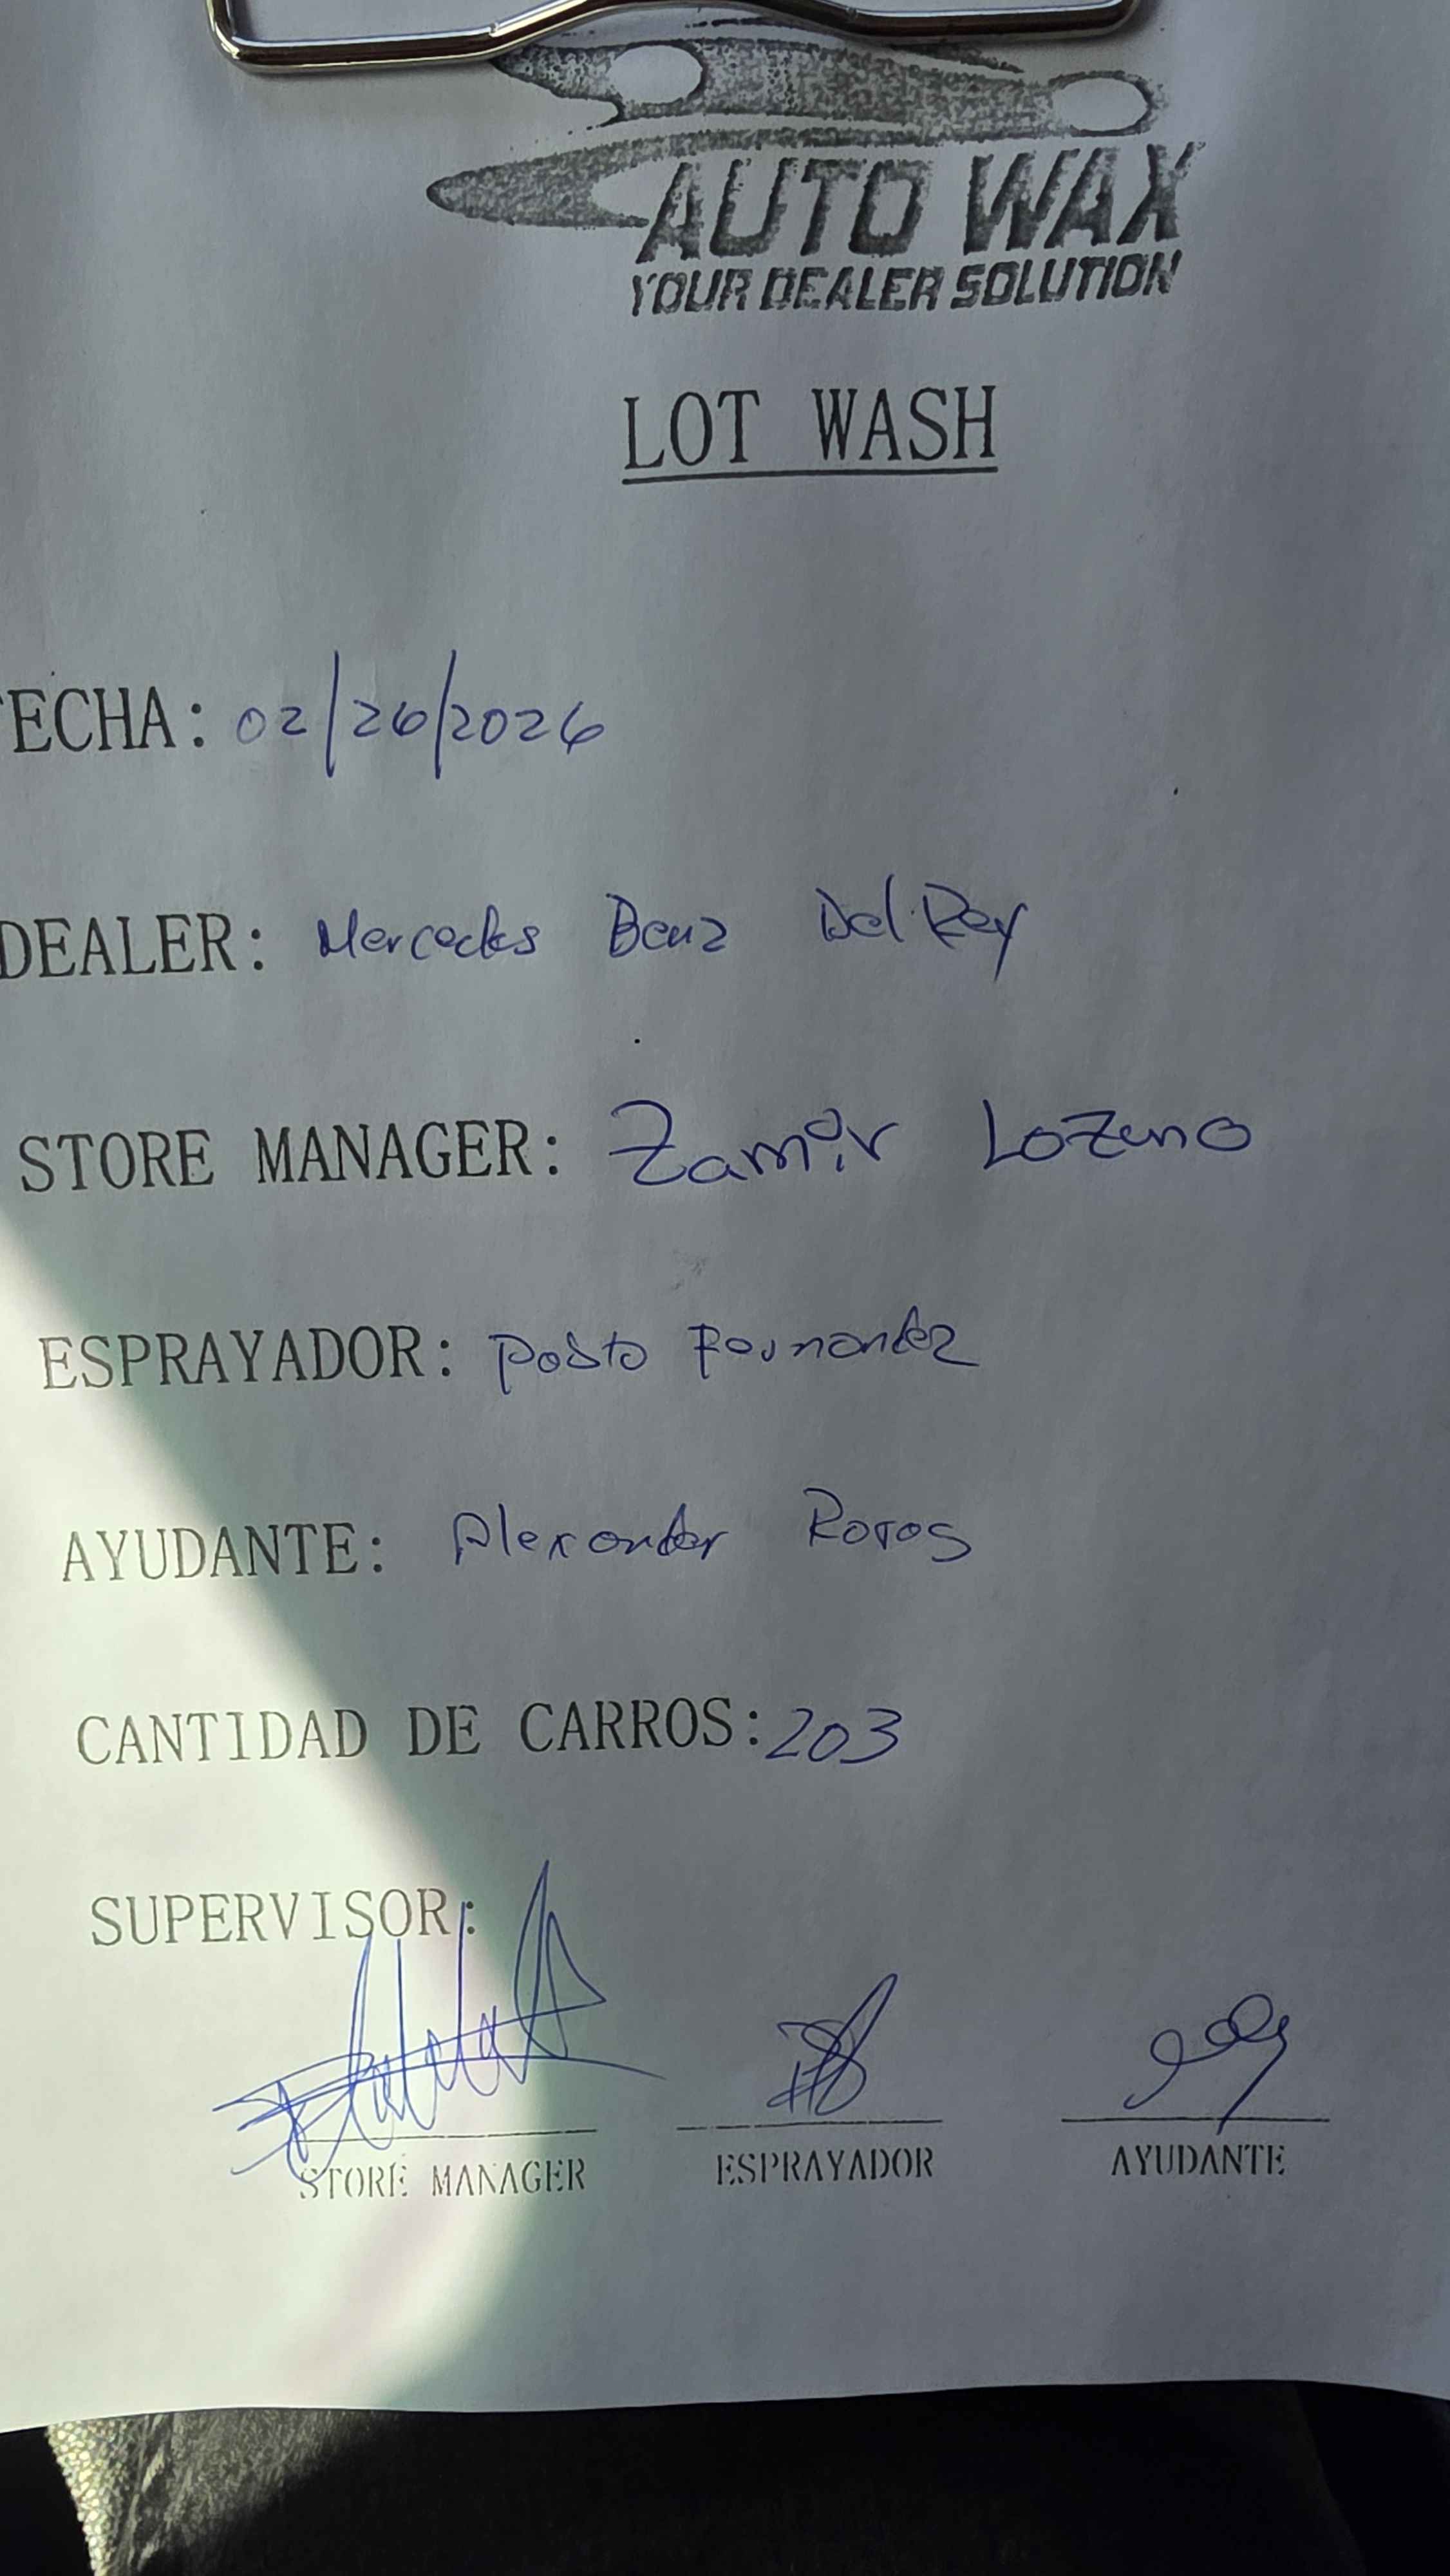 AUTO WAX
YOUR DEALER SOLUTION
LOT WASH
FECHA: 02/26/2026
DEALER: Mercedes Benz Del Rey
STORE MANAGER: Zamir Lozano
ESPRAYADOR: Fernandez
AYUDANTE: Alexander
CANTIDAD DE CARROS: 203
SUPERVISOR:
STORE MANAGER ESPRAYADOR AYUDANTE